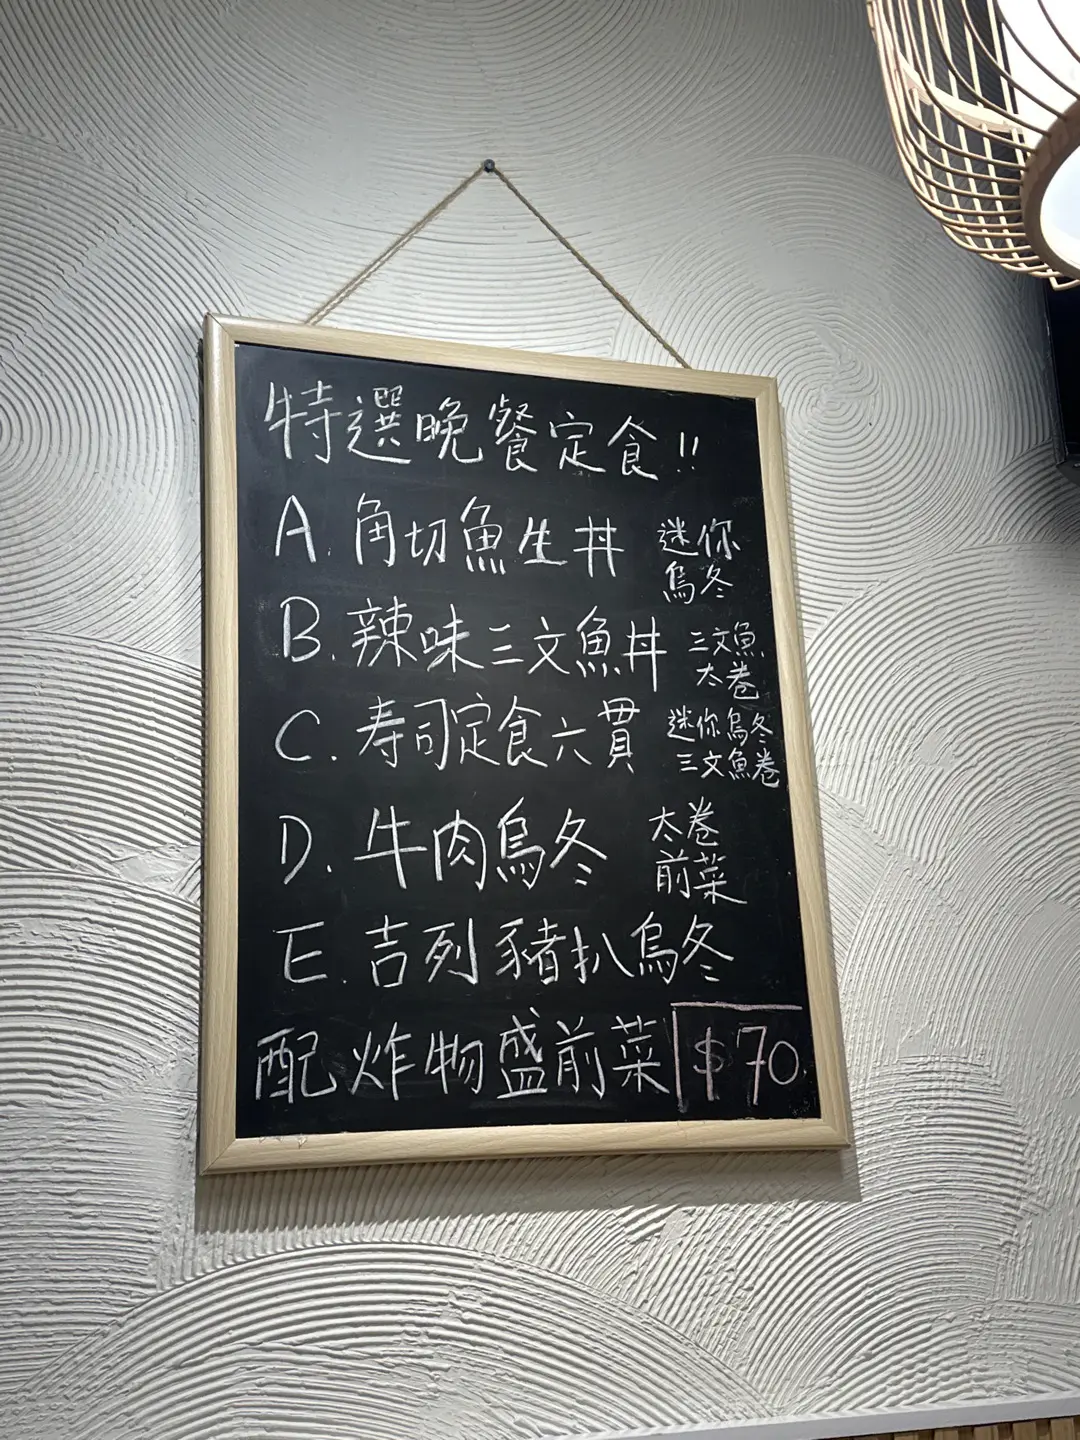 特選晚餐定食!!
A. 角切魚生丼 迷你
烏冬
B. 辣味三文魚丼 三文魚
太卷
C. 寿司定食六貫 迷你烏冬
三文魚卷
D. 牛肉烏冬 太卷
前菜
E. 吉列豬扒烏冬
配炸物盛前菜 $70